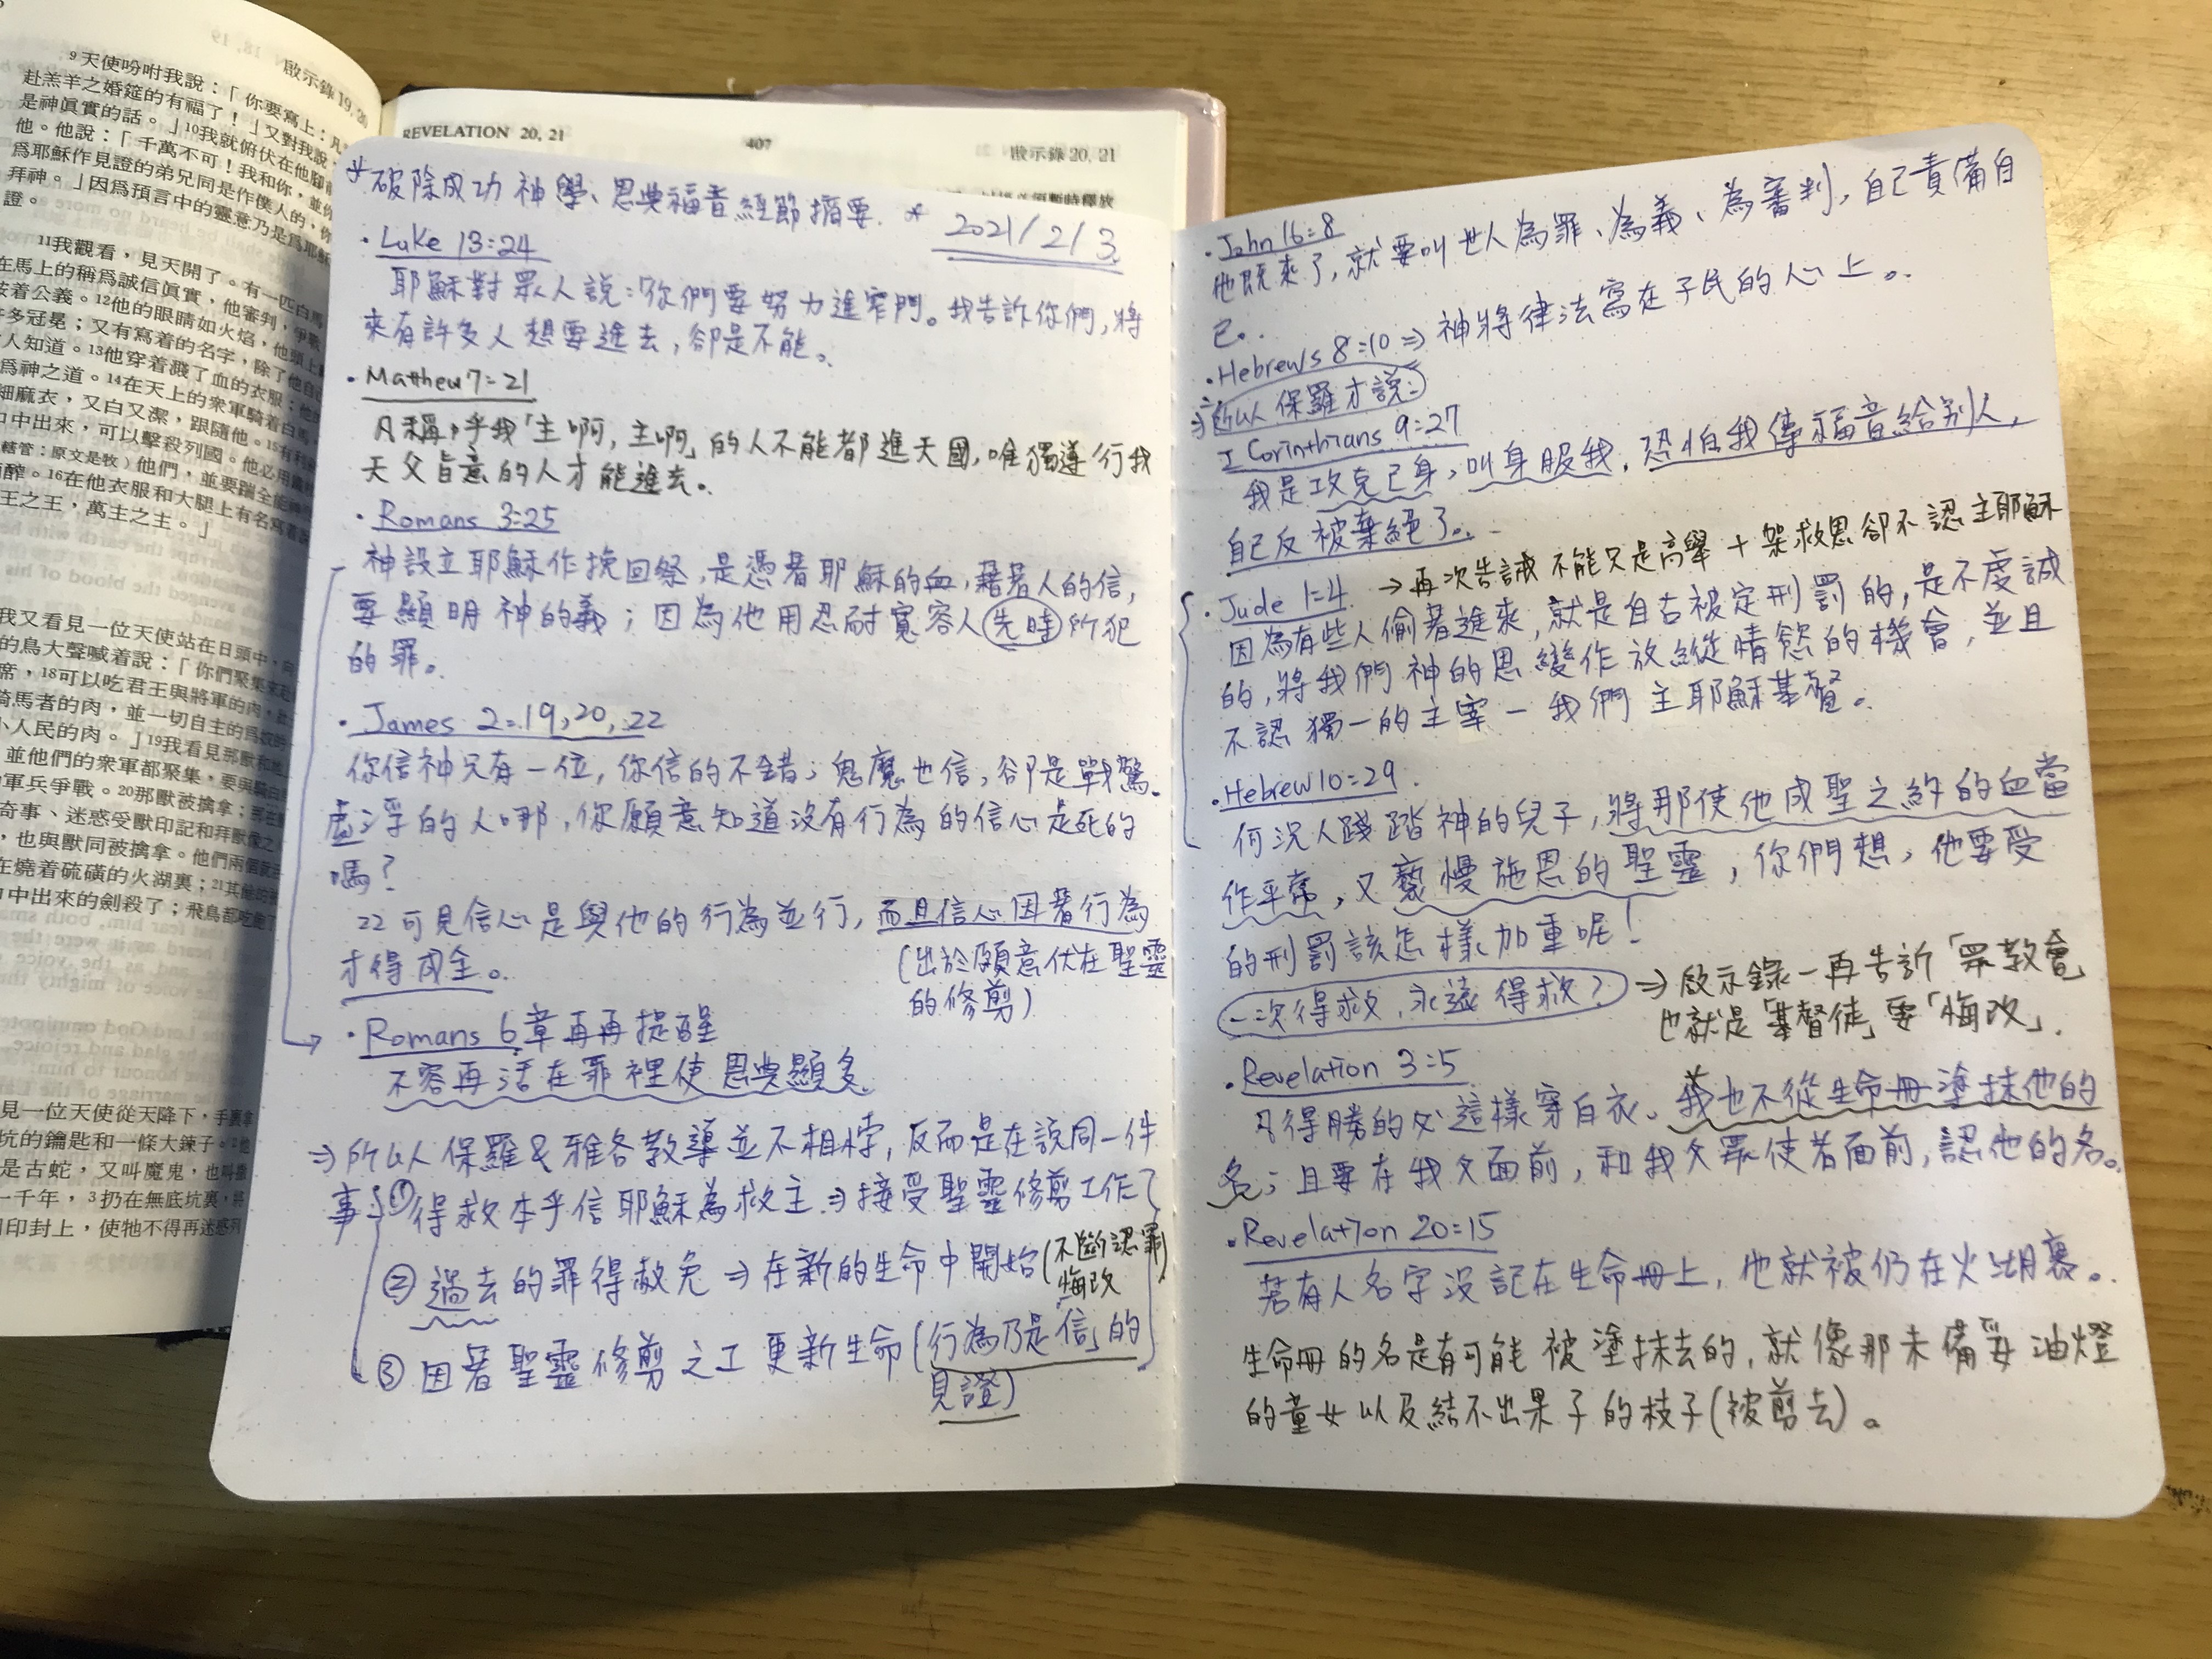 啟示錄 19, 20
9天使吩咐我說：「你要寫上：凡
赴羔羊之婚筵的有福了！」又對我說
是神眞實的話。」10我就俯伏在他腳前
他。他說：「千萬不可！我和你，並你
爲耶穌作見證的弟兄同是作僕人的，你
拜神。」因爲預言中的靈意乃是爲耶穌
證。
11我觀看，見天開了。有一匹白馬
在馬上的稱爲誠信眞實，他審判，爭戰
按着公義。12他的眼睛如火焰，他頭上
許多冠冕；又有寫着的名字，除了他自
人知道。13他穿着濺了血的衣服；他
爲神之道。14在天上的衆軍騎着白馬
細麻衣，又白又潔，跟隨他。15有利
口中出來，可以擊殺列國。他必用鐵
轄管：原文是牧）他們，並要踹全能
酒醡。16在他衣服和大腿上有名寫着說
王之王，萬主之主。」
我又看見一位天使站在日頭中，向
的鳥大聲喊着說：「你們聚集來赴
席，18可以吃君王與將軍的肉，
騎馬者的肉，並一切自主的爲奴的
小人民的肉。」19我看見那獸和地
並他們的衆軍都聚集，要與騎白
軍兵爭戰。20那獸被擒拿；那在
奇事、迷惑受獸印記和拜獸像之
，也與獸同被擒拿。他們兩個就
在燒着硫磺的火湖裏；21其餘的
口中出來的劍殺了；飛鳥都吃飽了
見一位天使從天降下，手裏拿
坑的鑰匙和一條大鍊子。2他
是古蛇，又叫魔鬼，也叫撒
一千年，3扔在無底坑裏，將
用印封上，使牠不得再迷惑列
REVELATION 20, 21
407
啟示錄 20, 21
必須暫時釋放
* 破除成功神學、恩典福音經節摘要. *
2021/2/3.
· Luke 13:24
耶穌對眾人說：「你們要努力進窄門。我告訴你們，將
來有許多人想要進去，卻是不能。
· Matthew 7:21
凡稱呼我「主啊，主啊」的人不能都進天國，唯獨遵行我
天父旨意的人才能進去。
· Romans 3:25
神設立耶穌作挽回祭，是憑著耶穌的血，藉著人的信，
要顯明神的義；因為他用忍耐寬容人先時所犯
的罪。
· James 2:19,20,22
你信神只有一位，你信的不錯；鬼魔也信，卻是戰驚。
虛浮的人哪，你願意知道沒有行為的信心是死的
嗎？
22 可見信心是與他的行為並行，而且信心因著行為
才得成全。
(出於願意伏在聖靈
的修剪)
· Romans 6章再再提醒
不容再活在罪裡使恩典顯多
⇒所以保羅&雅各教導並不相悖，反而是在說同一件
事：①得救本乎信耶穌為救主⇒接受聖靈修剪工作
②過去的罪得赦免⇒在新的生命中開始(不斷認罪
悔改
③因著聖靈修剪之工更新生命(行為乃是「信」的
見證)
· John 16:8
他既來了，就要叫世人為罪、為義、為審判，自己責備自
己。
· Hebrews 8:10 ⇒ 神將律法寫在子民的心上。
⇒所以保羅才說：
I Corinthians 9:27
我是攻克己身，叫身服我，恐怕我傳福音給別人，
自己反被棄絕了。
· Jude 1:4 → 再次告誡不能只是高舉十架救恩卻不認主耶穌
因為有些人偷著進來，就是自古被定刑罰的，是不虔誠
的，將我們神的恩變作放縱情慾的機會，並且
不認獨一的主宰－我們主耶穌基督。
· Hebrew 10:29
何況人踐踏神的兒子，將那使他成聖之約的血當
作平常，又褻慢施恩的聖靈，你們想，他要受
的刑罰該怎樣加重呢！
一次得救，永遠得救？ ⇒啟示錄一再告訴「眾教會」
也就是「基督徒」要「悔改」.
· Revelation 3:5
凡得勝的必這樣穿白衣、我也不從生命冊塗抹他的
名；且要在我父面前，和我父眾使者面前，認他的名。
· Revelation 20:15
若有人名字沒記在生命冊上，他就被仍在火湖裏。
生命冊的名是有可能被塗抹去的，就像那未備妥油燈
的童女以及結不出果子的枝子(被剪去)。